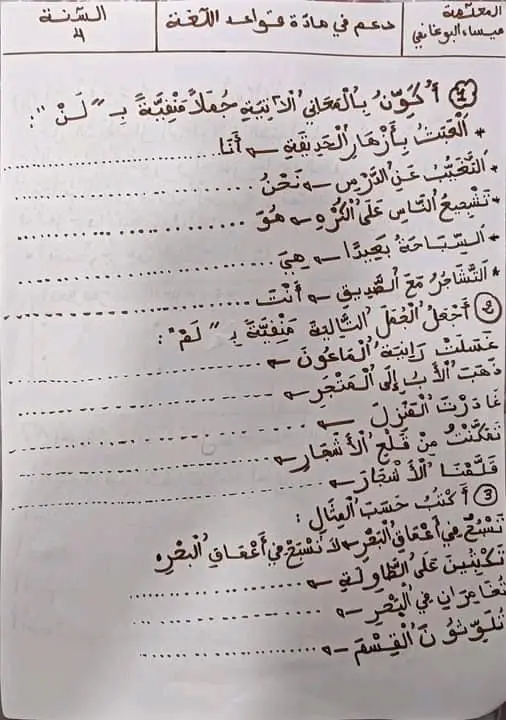 المعلّمة
ميساء البوغانمي
دعم في مادّة قواعد اللّغة
السّنة
4
1 أُكَوِّنُ بِالْمَعَانِي الْآتِيَةِ جُمَلاً مَنْفِيَّةً بِـ "لَنْ":
* الْعَبَثُ بِأَزْهَارِ الْحَدِيقَةِ ← أَنَا ....................
* التَّغَيُّبُ عَنِ الدَّرْسِ ← نَحْنُ ....................
* تَشْجِيعُ النَّاسِ عَلَى الْكُرْهِ ← هُوَ ....................
* السِّبَاحَةُ بَعِيدًا ← هِيَ ....................
* التَّشَاجُرُ مَعَ الصَّدِيقِ ← أَنْتَ ....................
2 أَجْعَلُ الْجُمَلَ التَّالِيَةَ مَنْفِيَّةً بِـ "لَمْ":
غَسَلَتْ رَانِيَةُ الْمَاعُونَ ← ....................
ذَهَبَ الْأَبُ إِلَى الْمَتْجَرِ ← ....................
غَادَرْتُ الْمَنْزِلَ ← ....................
تَمَكَّنْتُ مِنْ قَلْعِ الْأَشْجَارِ ← ....................
قَلَّمْنَا الْأَشْجَارَ ← ....................
3 أَكْتُبُ حَسَبَ الْمِثَالِ:
تَسْبَحُ فِي أَعْمَاقِ الْبَحْرِ ← لَا تَسْبَحْ فِي أَعْمَاقِ الْبَحْرِ
تَكْتُبِينَ عَلَى الطَّاوِلَةِ ← ....................
تُغَامِرَانِ فِي الْبَحْرِ ← ....................
تُلَوِّثُونَ الْقِسْمَ ← ....................